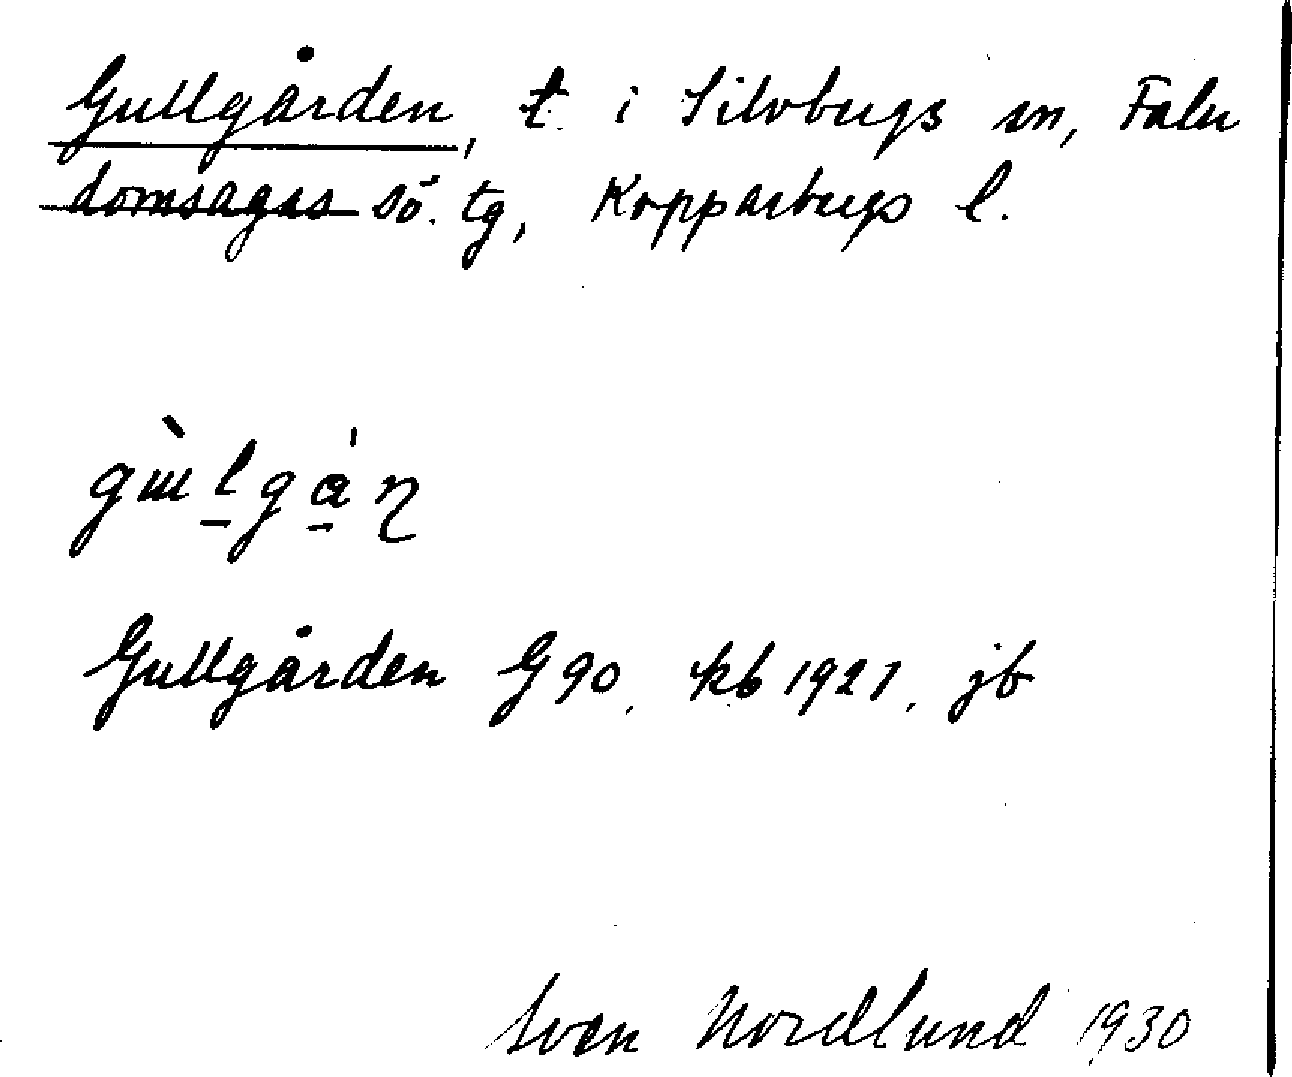 Gullgården, t. i Silvbergs sn, Falu
domsagas sö. tg, Kopparbergs l.
Gullgården G 90, kb 1921, jb
Sven Nordlund 1930